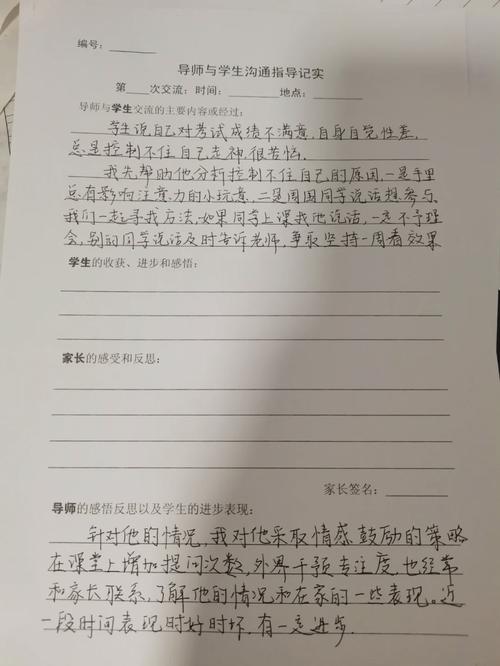 编号：
导师与学生沟通指导记实
第 次交流：时间： 地点：
导师与学生交流的主要内容或经过：
学生说自己对考试成绩不满意，自身自觉性差，
总是控制不住自己走神，很苦恼。
我先帮助他分析控制不住自己的原因，一是手里
总有影响注意力的小玩意，二是周围同学说话想参与。
我们一起寻找方法，如果同学上课找他说话，一定不予理
会，别的同学说话及时告诉老师，争取坚持一周看效果
学生的收获、进步和感悟：
家长的感受和反思：
家长签名：
导师的感悟反思以及学生的进步表现：
针对他的情况，我对他采取情感鼓励的策略
在课堂上增加提问次数，外界干预专注度，也经常
和家长联系，了解他的情况和在家的一些表现。近
一段时间表现时好时坏，有一定进步。